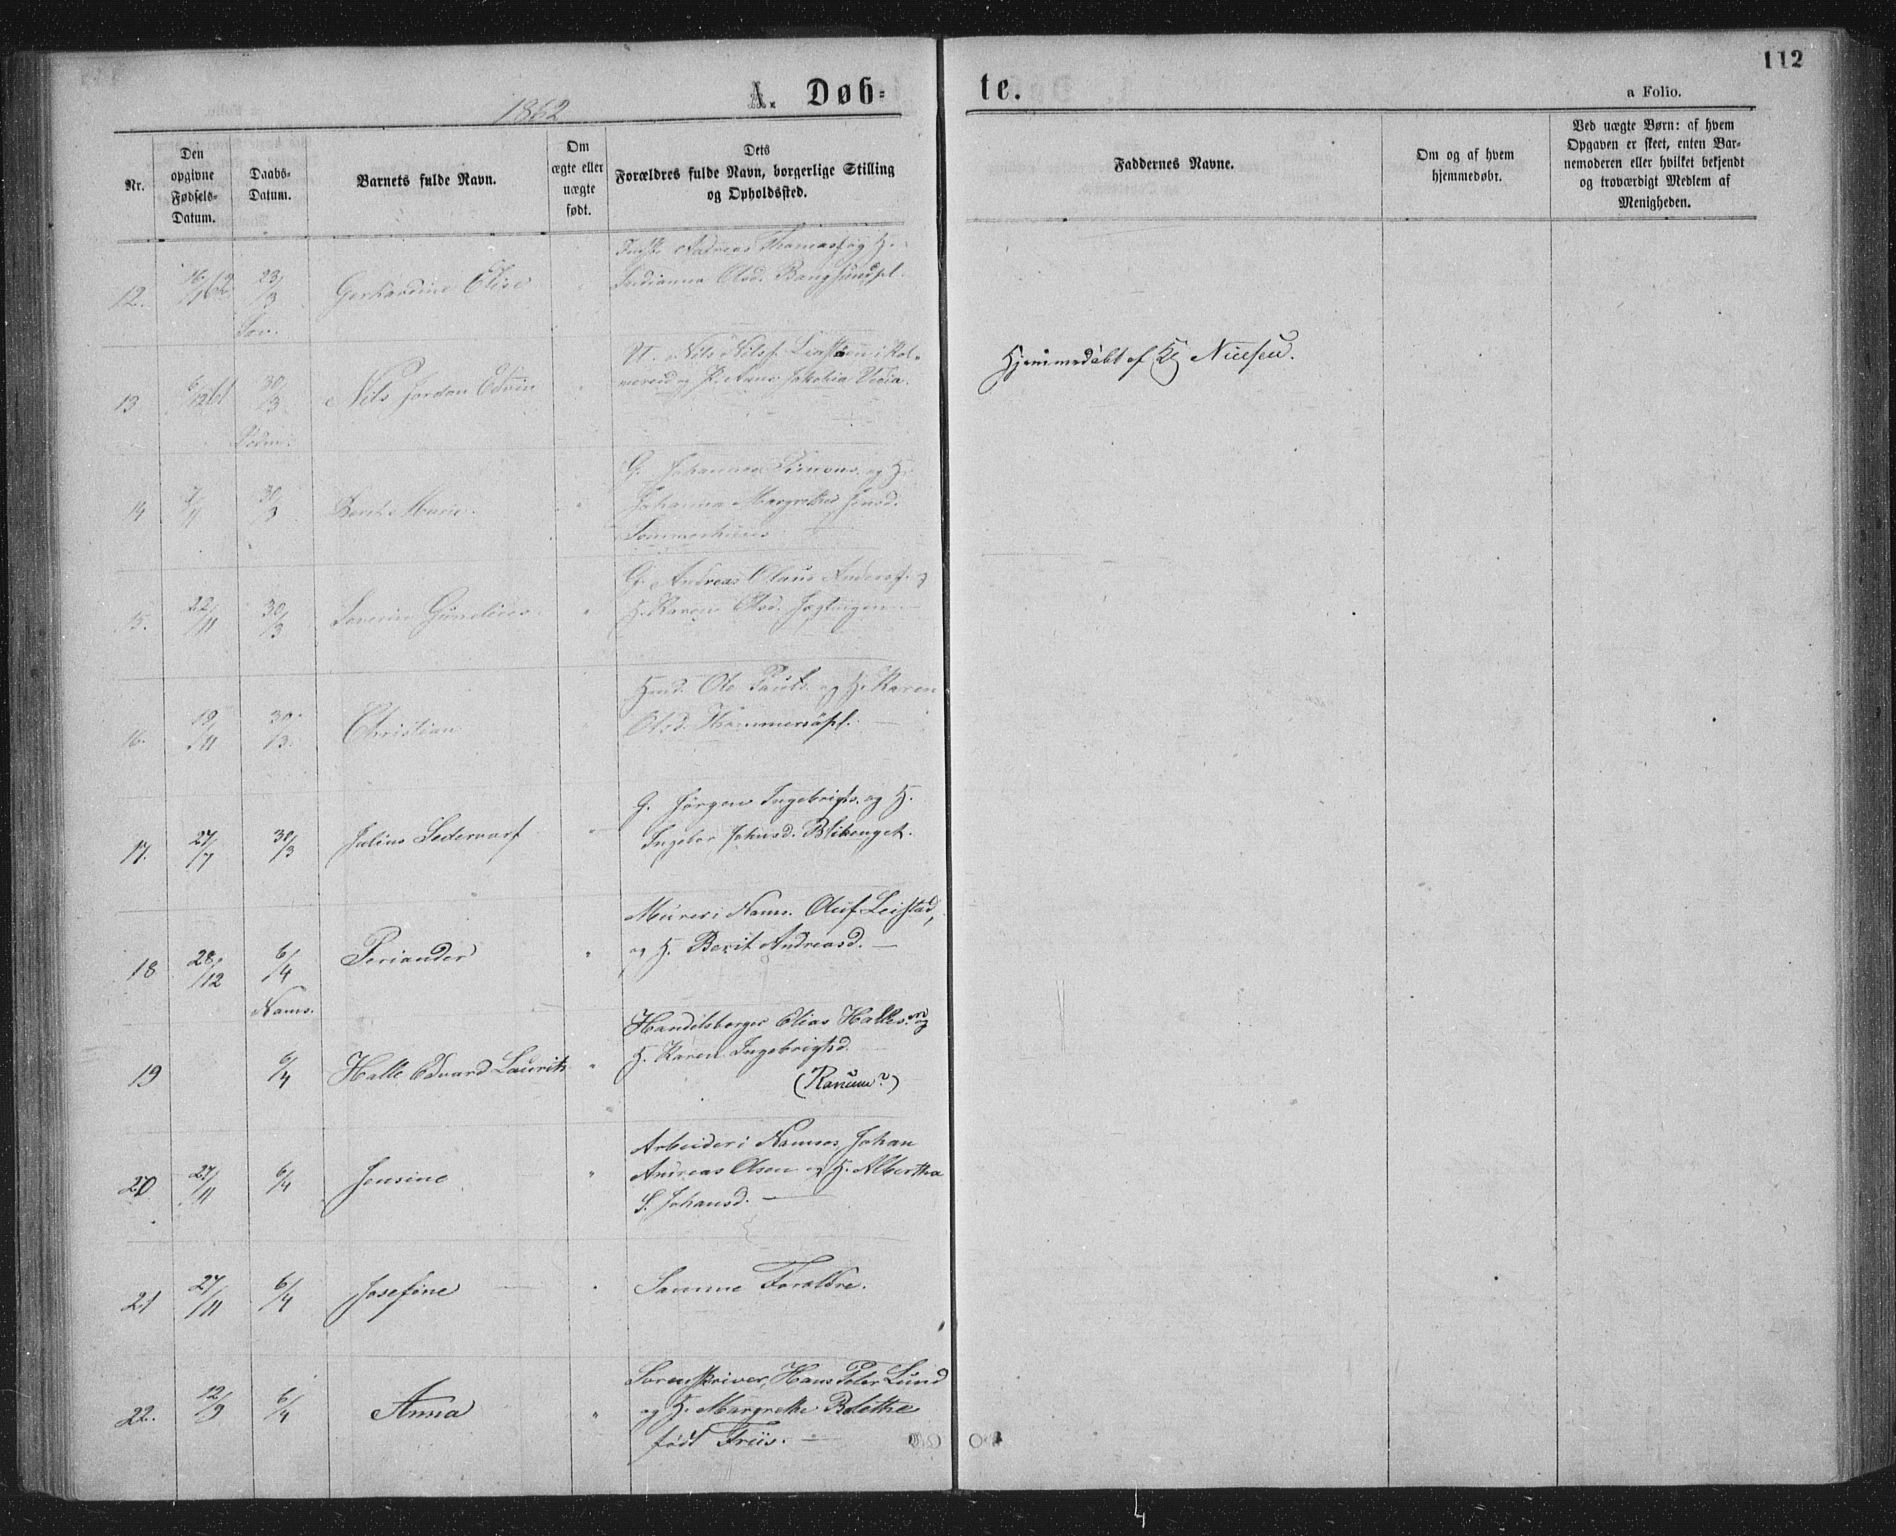 112
A. Døb-
te.
a Folio.
1862
Nr.
Den
opgivne
Fødsels-
Datum.
Daabs-
Datum.
Barnets fulde Navn.
Om
ægte eller
uægte
født.
Dets
Forældres fulde Navn, borgerlige Stilling
og Opholdssted.
Faddernes Navne.
Om og af hvem
hjemmedøbt.
Ved uægte Børn: af hvem
Opgaven er skeet, enten Bar-
nemoderen eller hvilket bekjendt
og troværdigt Medlem af
Menigheden.
Andreas Thomass. og H.
12. 16/1 62 23/3 Gerhardine Elise " Olsd. Bangsundpl.
Nils Nilss.
13 /12 61 30/3 Nils Jordan Edvin " Jakobia
Hjemmedøbt af Kl Nielsen.
G. Johannes Simons. og H.
14 7/11 30/3 Berit Marie. " Johanna Margrethe Jensd.
G. Andreas Olaus Anderss. og
15. 22/11 30/3 Severin " H. Karen Olsd.
Ole Pauls. og H. Karen
16. 19/11 30/3 Christian Olsd. Hammersøpl.
G. Jørgen Ingebrigts. og H.
17. 27/7 30/3 Julius Sedervarf " Ingebor Johnsd. Blikenget.
Murer i Nams. Oluf Leistad,
18 28/12 6/4 Periander " og H. Berit Andreasd.
Nams.
Handelsborger Elias Halles. og
19 6/4 Halle Edvard Laurits " H. Karen Ingebrigtsd.
(Ranum?)
Arbeider i Namsos Johan
20 27/11 6/4 Jensine " Andreas Olsen og H. Albertha
S. Johansd.
21 27/11 6/4 Josefine " Samme Forældre.
Sorenskriver, Hans Peter Lund
22. 12/9 6/4 Anna " og H. Margrethe Bolethe
født Friis.